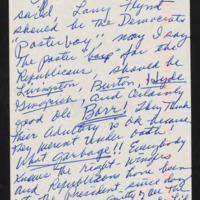 said Larry Flynt
should be the Democrats
"Poster boy" - now I say
the Poster "boy" for the
Republicans, should be
Livingston, Burton, Hyde
Gingrich, and Certainly
good ole Barr! They think
their Adultery is ok because
they werent Under oath!
What Garbage!! Everybody
knows the right-wingers
and Republicans have been
the President since day